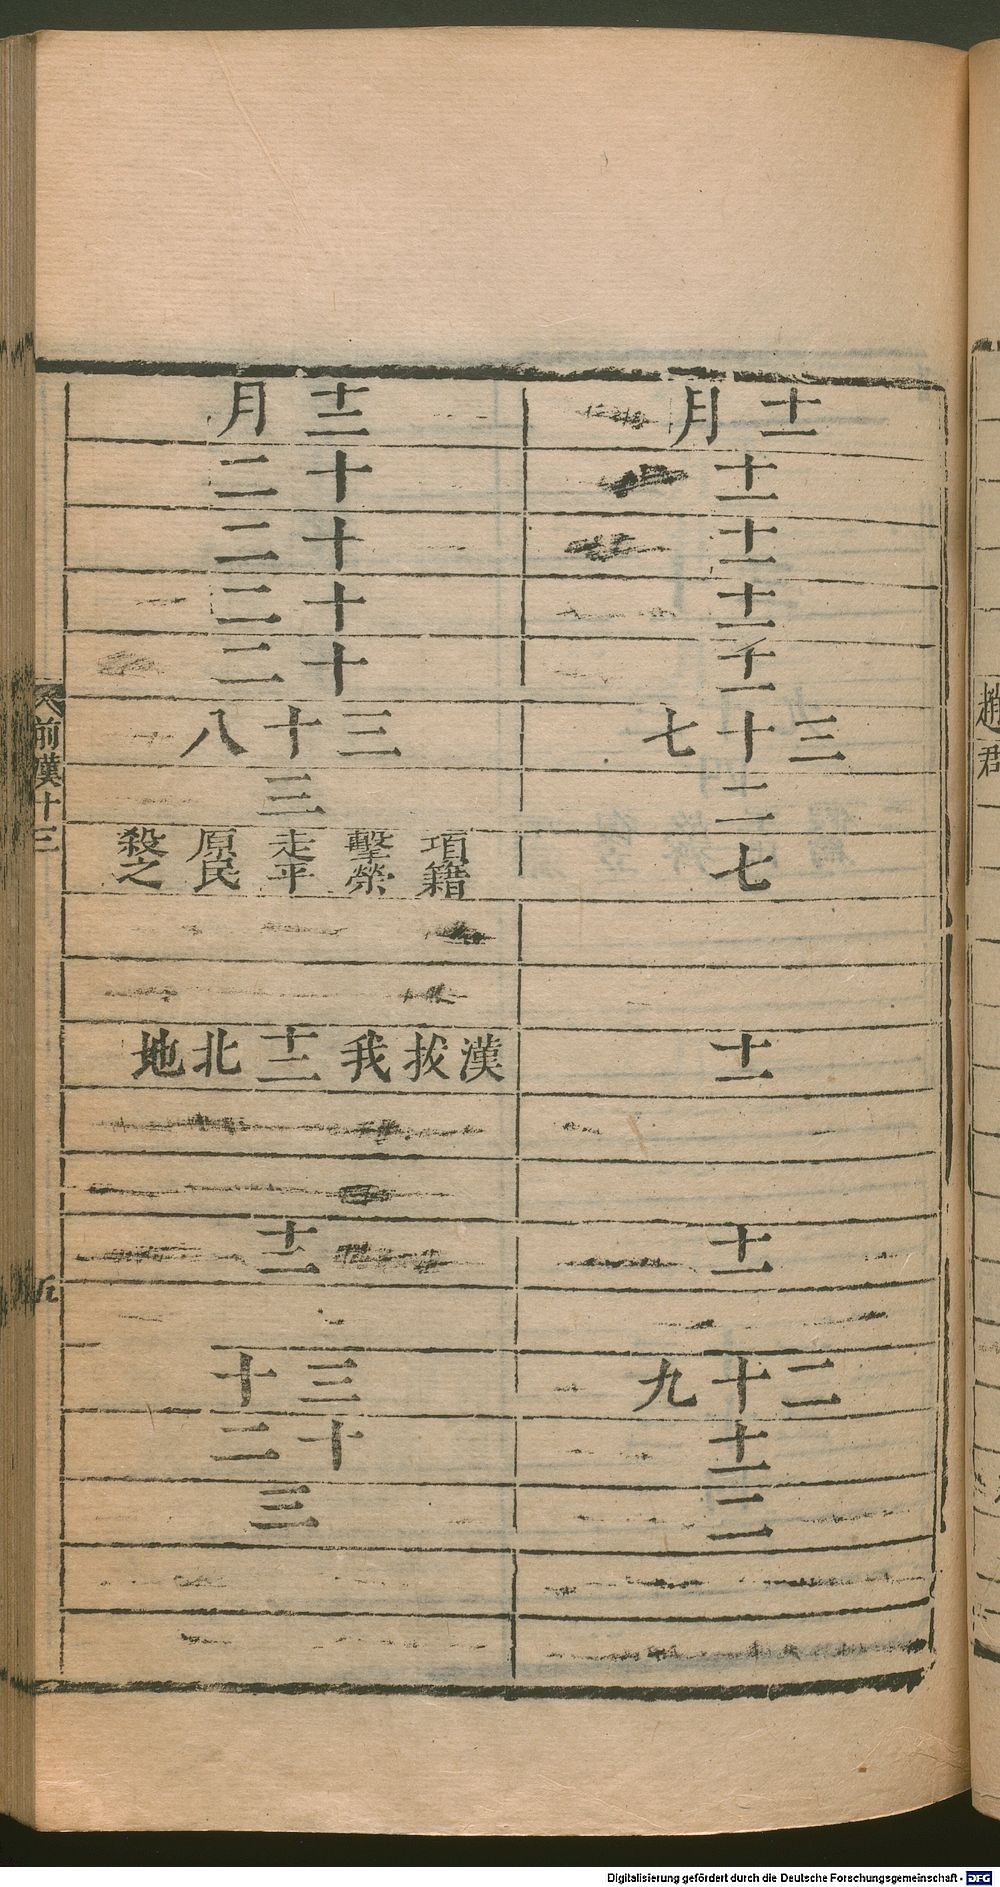 十一月
十一
十一
十一
十一
三十七
二
七
十一
十一
二十九
十一
二
十二月
十二
十二
十二
十二
三十八
三
項籍擊榮走平原民殺之
漢拔我北地
十二
十二
三十
十二
三
前漢十三
五
趙
君
Digitalisierung gefördert durch die Deutsche Forschungsgemeinschaft - DFG